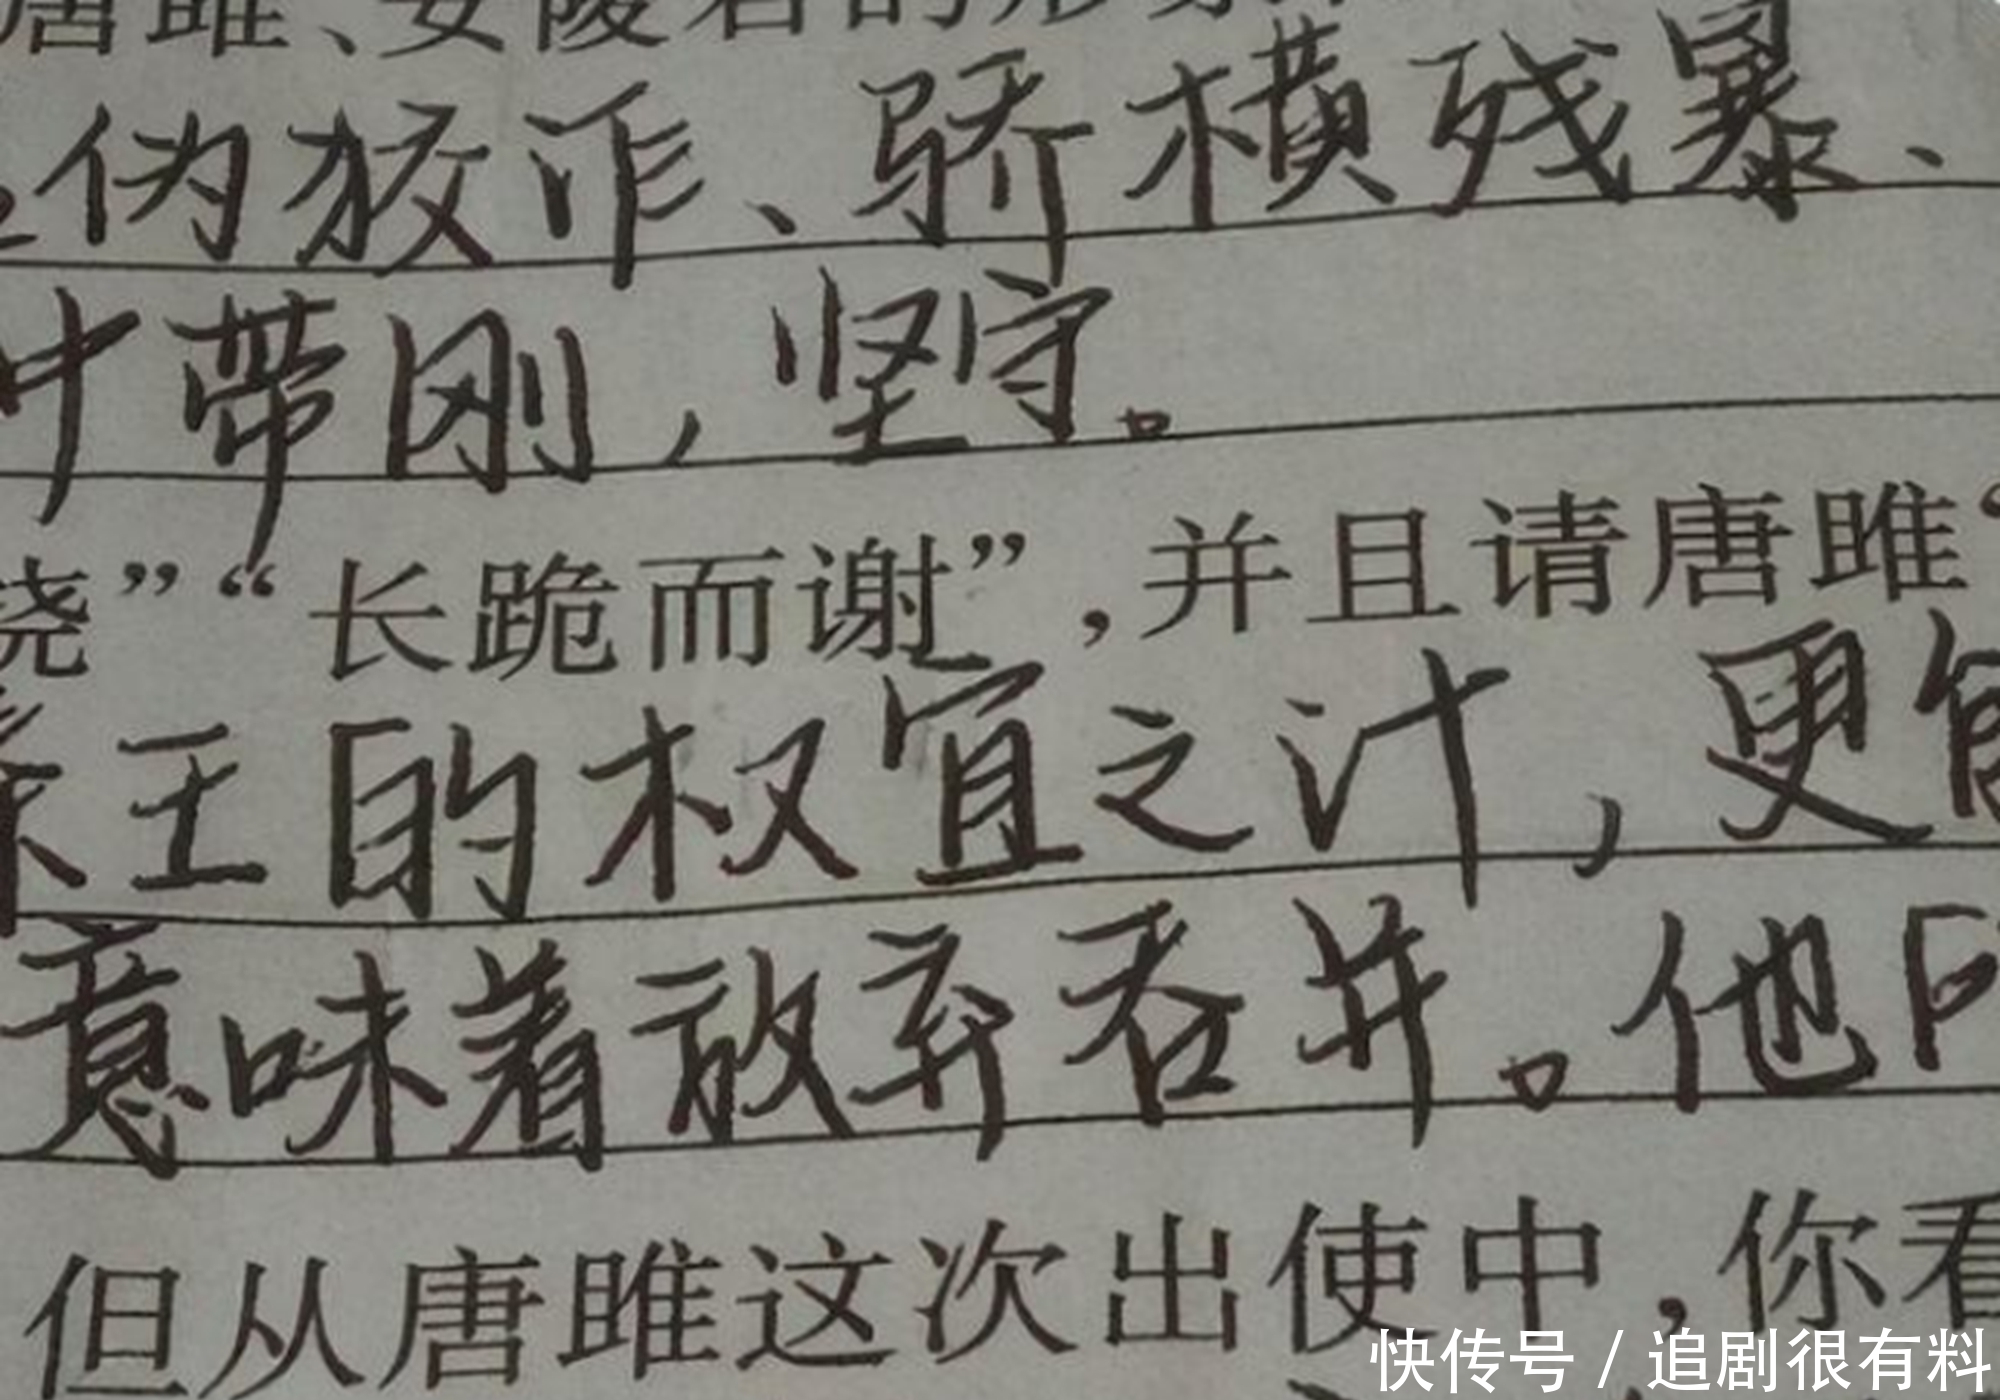 唐雎、安陵君的形象
伪狡诈、骄横残暴、
中带刚,坚守。
挠”“长跪而谢”,并且请唐雎“
秦王的权宜之计,更能
意味着放弃吞并。他的
但从唐雎这次出使中,你看
快传号/追剧很有料